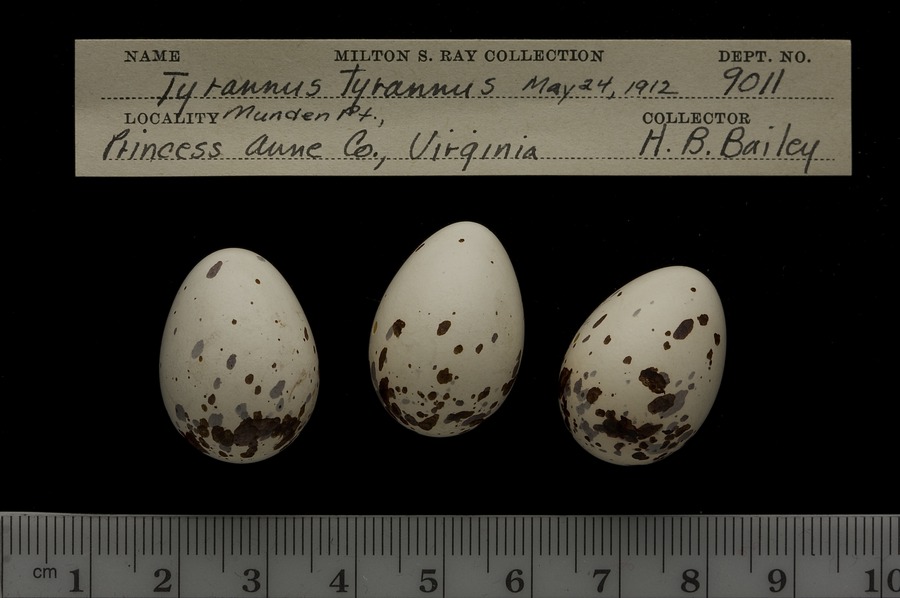 NAME MILTON S. RAY COLLECTION DEPT. NO.
Tyrannus tyrannus May 24, 1912 9011
LOCALITY Munden Pt., COLLECTOR
Princess Anne Co., Virginia H. B. Bailey
cm 1 2 3 4 5 6 7 8 9 10